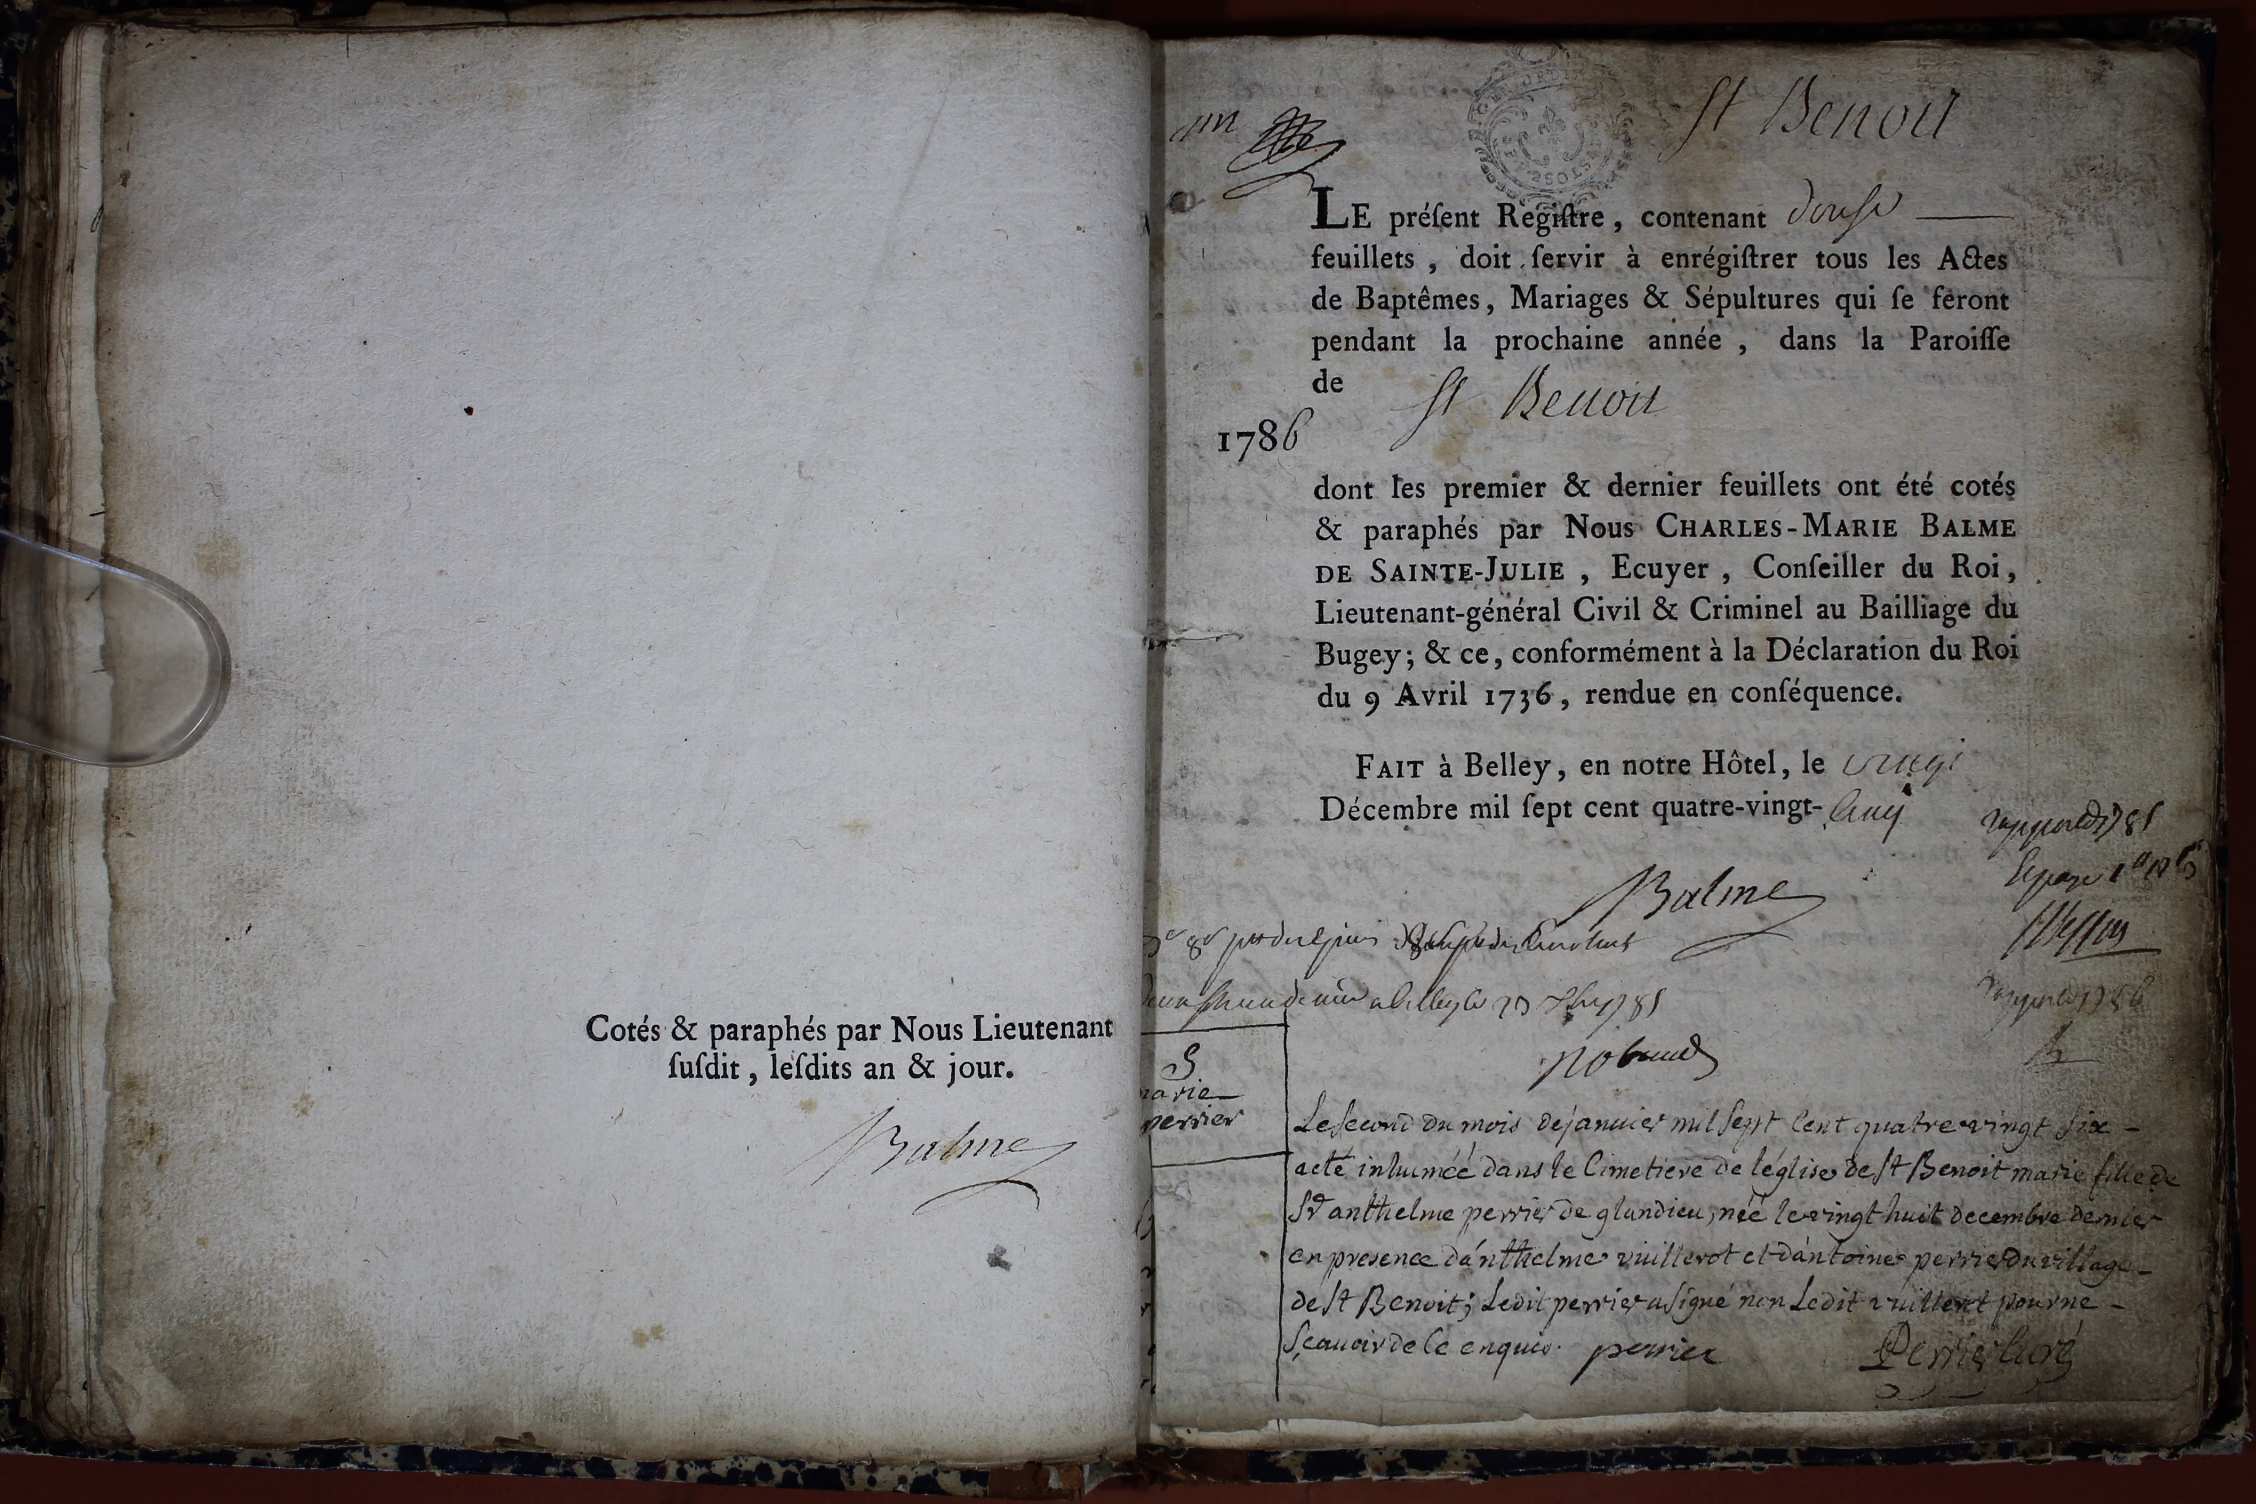 Cotés & paraphés par Nous Lieutenant
ſuſdit, leſdits an & jour.
Balme
un
St Benoit
LE préſent Regiſtre, contenant douse
feuillets, doit ſervir à enrégiſtrer tous les Actes
de Baptêmes, Mariages & Sépultures qui ſe feront
pendant la prochaine année, dans la Paroiſſe
de St Benoit
1786
dont les premier & dernier feuillets ont été cotés
& paraphés par Nous CHARLES-MARIE BALME
DE SAINTE-JULIE, Ecuyer, Conſeiller du Roi,
Lieutenant-général Civil & Criminel au Bailliage du
Bugey; & ce, conformément à la Déclaration du Roi
du 9 Avril 1736, rendue en conſéquence.
FAIT à Belley, en notre Hôtel, le
Décembre mil ſept cent quatre-vingt-cinq
Balme
S
marie
perrier
Le second du mois de janvier mil sept cent quatre vingt six
a eté inhuméé dans le Cimetiere de l'église de St Benoit marie fille de
Sr anthelme perrier de glandieu, néé le vingt huit decembre dernier
en presence d'anthelme vuillerot et d'antoine perrier du village
de St Benoit; Ledit perrier a signé non Ledit vuillerot pour ne
Sçauoir de ce enquis. perrier Perrier Curé